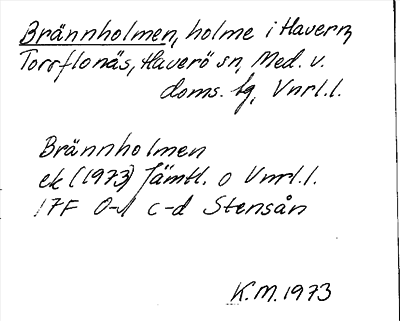 Brännholmen, holme i Havern,
Torrflonäs, Haverö sn, Med. v.
doms. tg, Vnrl.l.
Brännholmen
ek (1973) Jämtl. o Vnrl.l.
17F 0-1 c-d Stensån
K.M. 1973